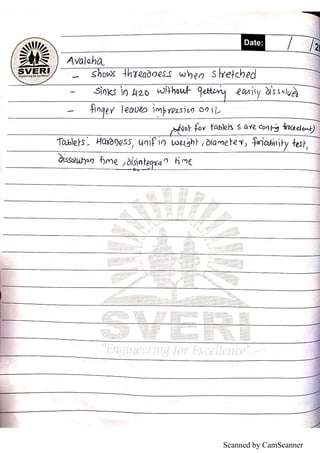 Date: / /20
SVERI
Engineering for Excellence
Avaleha
- shows threadness when stretched
- Sinks in H2O without getting easily dissolved
- finger leaves impression on it
(not for tablets s are contg
Tablets: Hardness, unif in weight, Diameter, friability test,
dissolution time, disintegran time
SVERI
"Engineering for Excellence"
Scanned by CamScanner